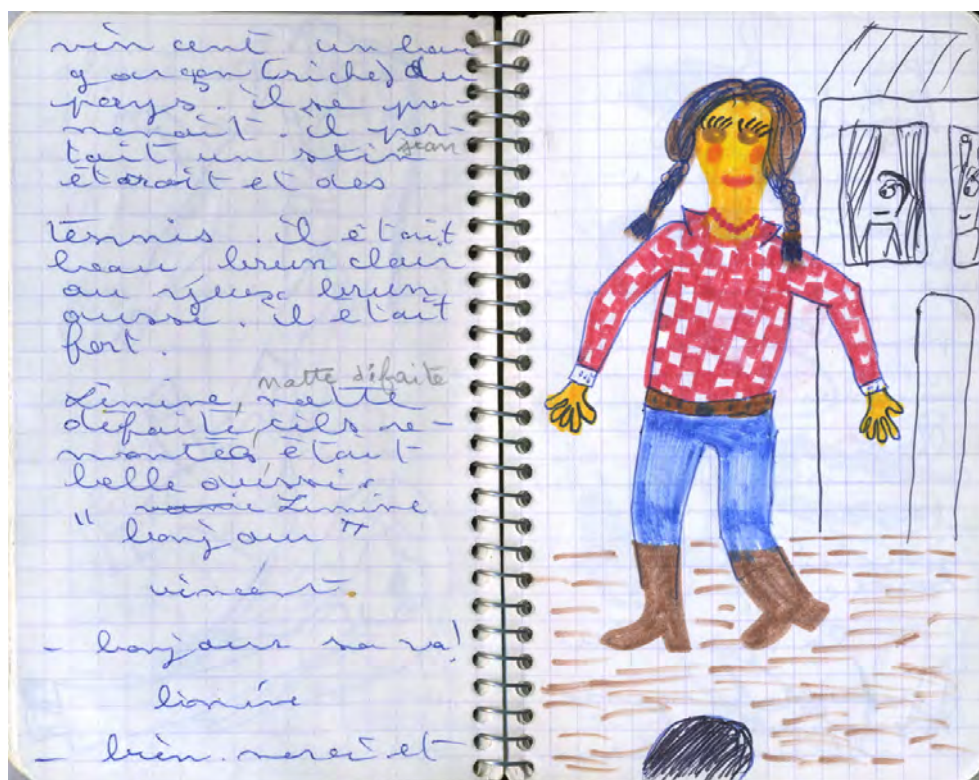 vin cent un beau
garçon (riche) du
pays. il se pro-
menait. il por-
tait un
jean
étroit et des
tennis. il était
beau, brun clair
au yeux brun
aussi. il était
fort.
natte défaite
Limine, natte
défaite, cils re-
montés était
belle aussi.
" Limine
bonjour "
vincent.
- bonjour sa va!
limine
- bien. merci et